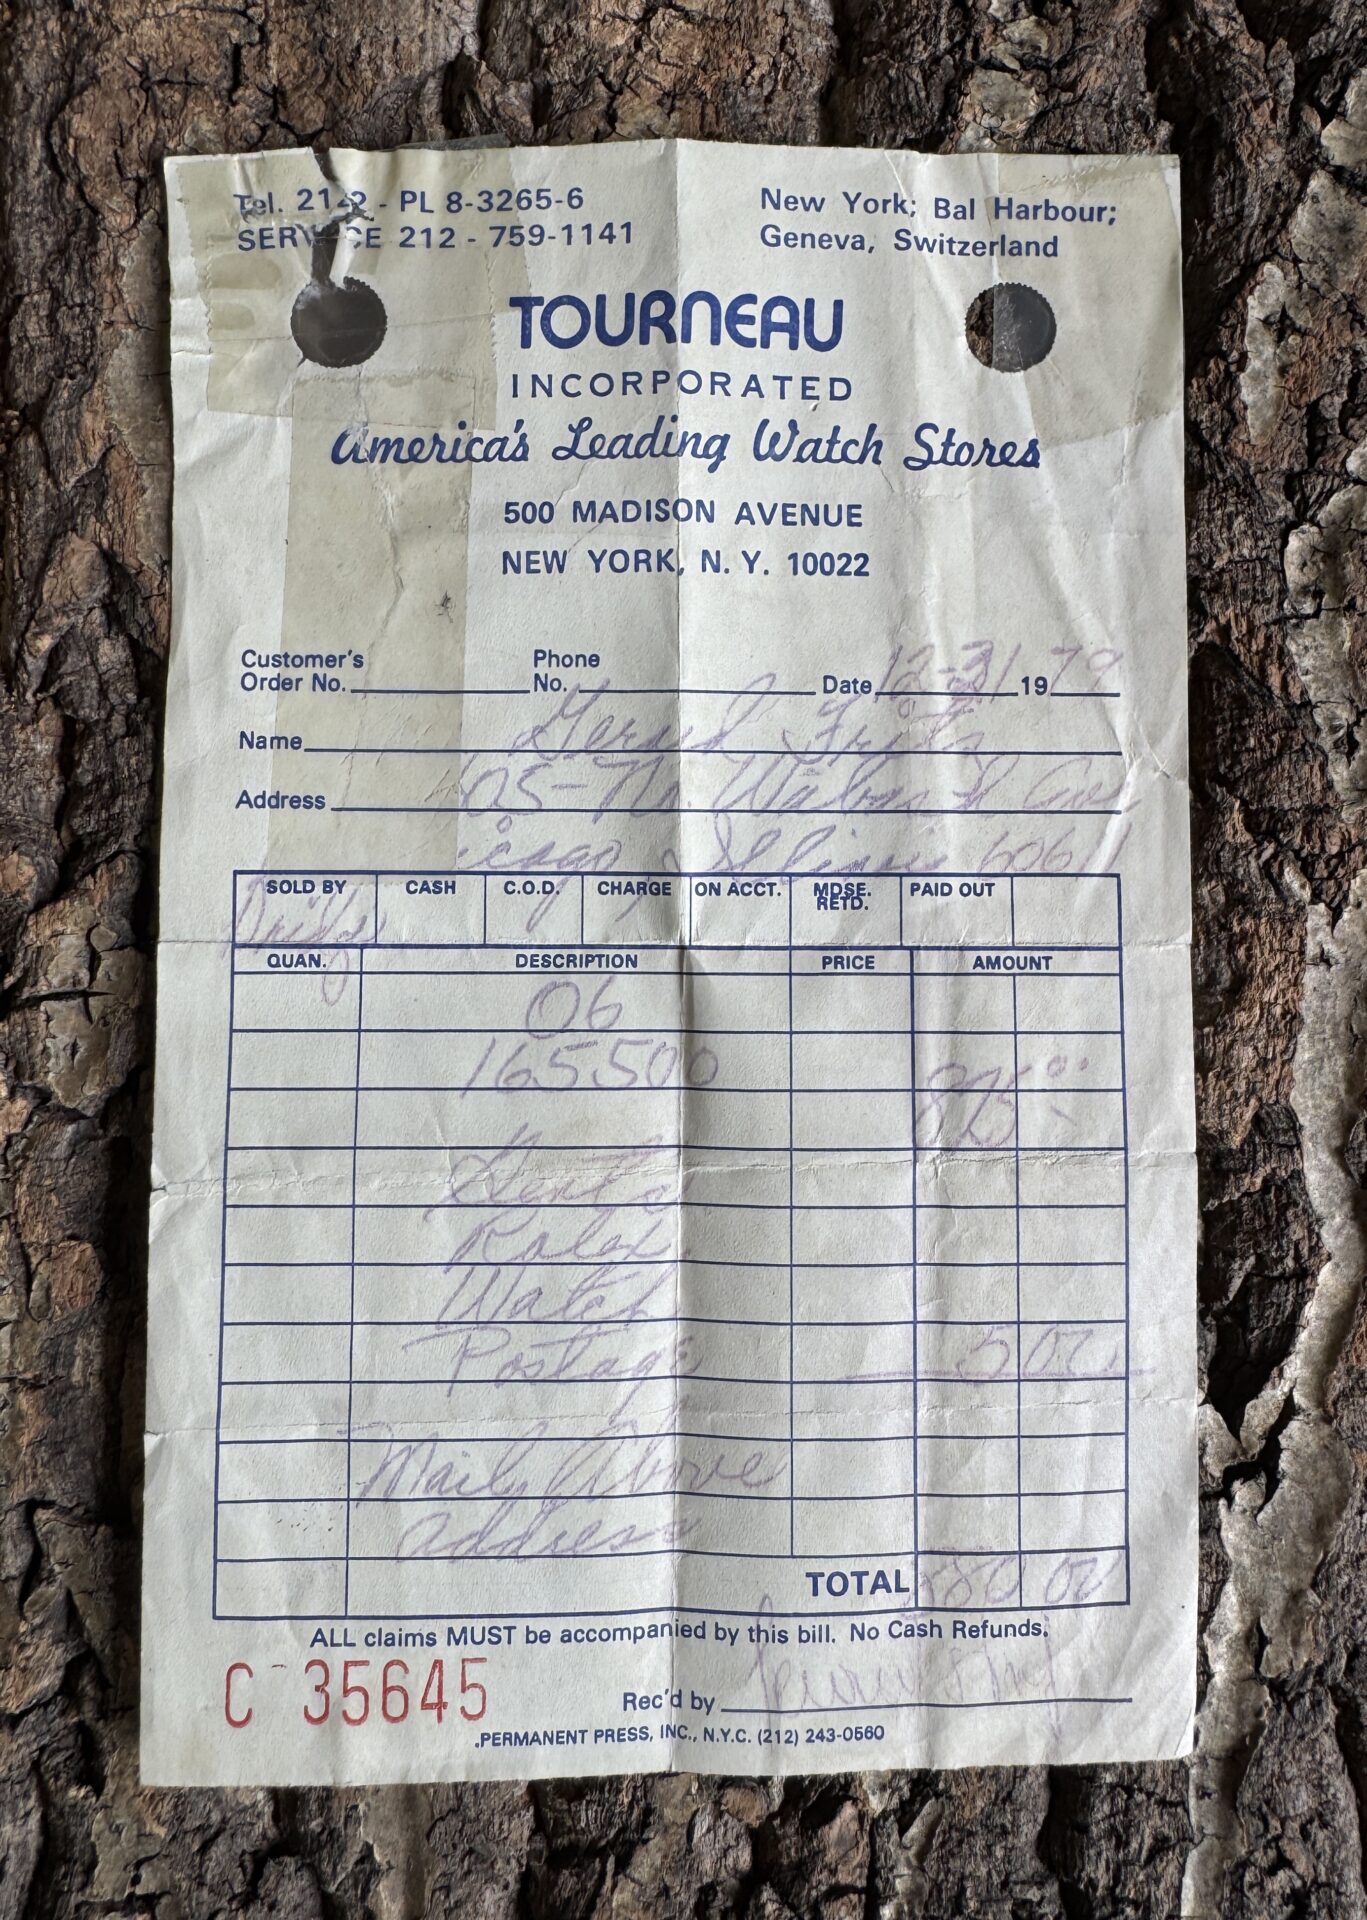 Tel. 212 - PL 8-3265-6
SERVICE 212 - 759-1141
New York; Bal Harbour;
Geneva, Switzerland
TOURNEAU
INCORPORATED
America's Leading Watch Stores
500 MADISON AVENUE
NEW YORK, N. Y. 10022
Customer's Order No.
Phone No.
Date 12-31 1979
Name
Address No. Ave
Illinois 60611
SOLD BY CASH C.O.D. CHARGE ON ACCT. MDSE. RETD. PAID OUT
QUAN. DESCRIPTION PRICE AMOUNT
06
165500
825 00
Gents
Rolex
Watch
Postage 5 00
Mail Above
address
TOTAL 00
ALL claims MUST be accompanied by this bill. No Cash Refunds.
C 35645
Rec'd by
PERMANENT PRESS, INC., N.Y.C. (212) 243-0560